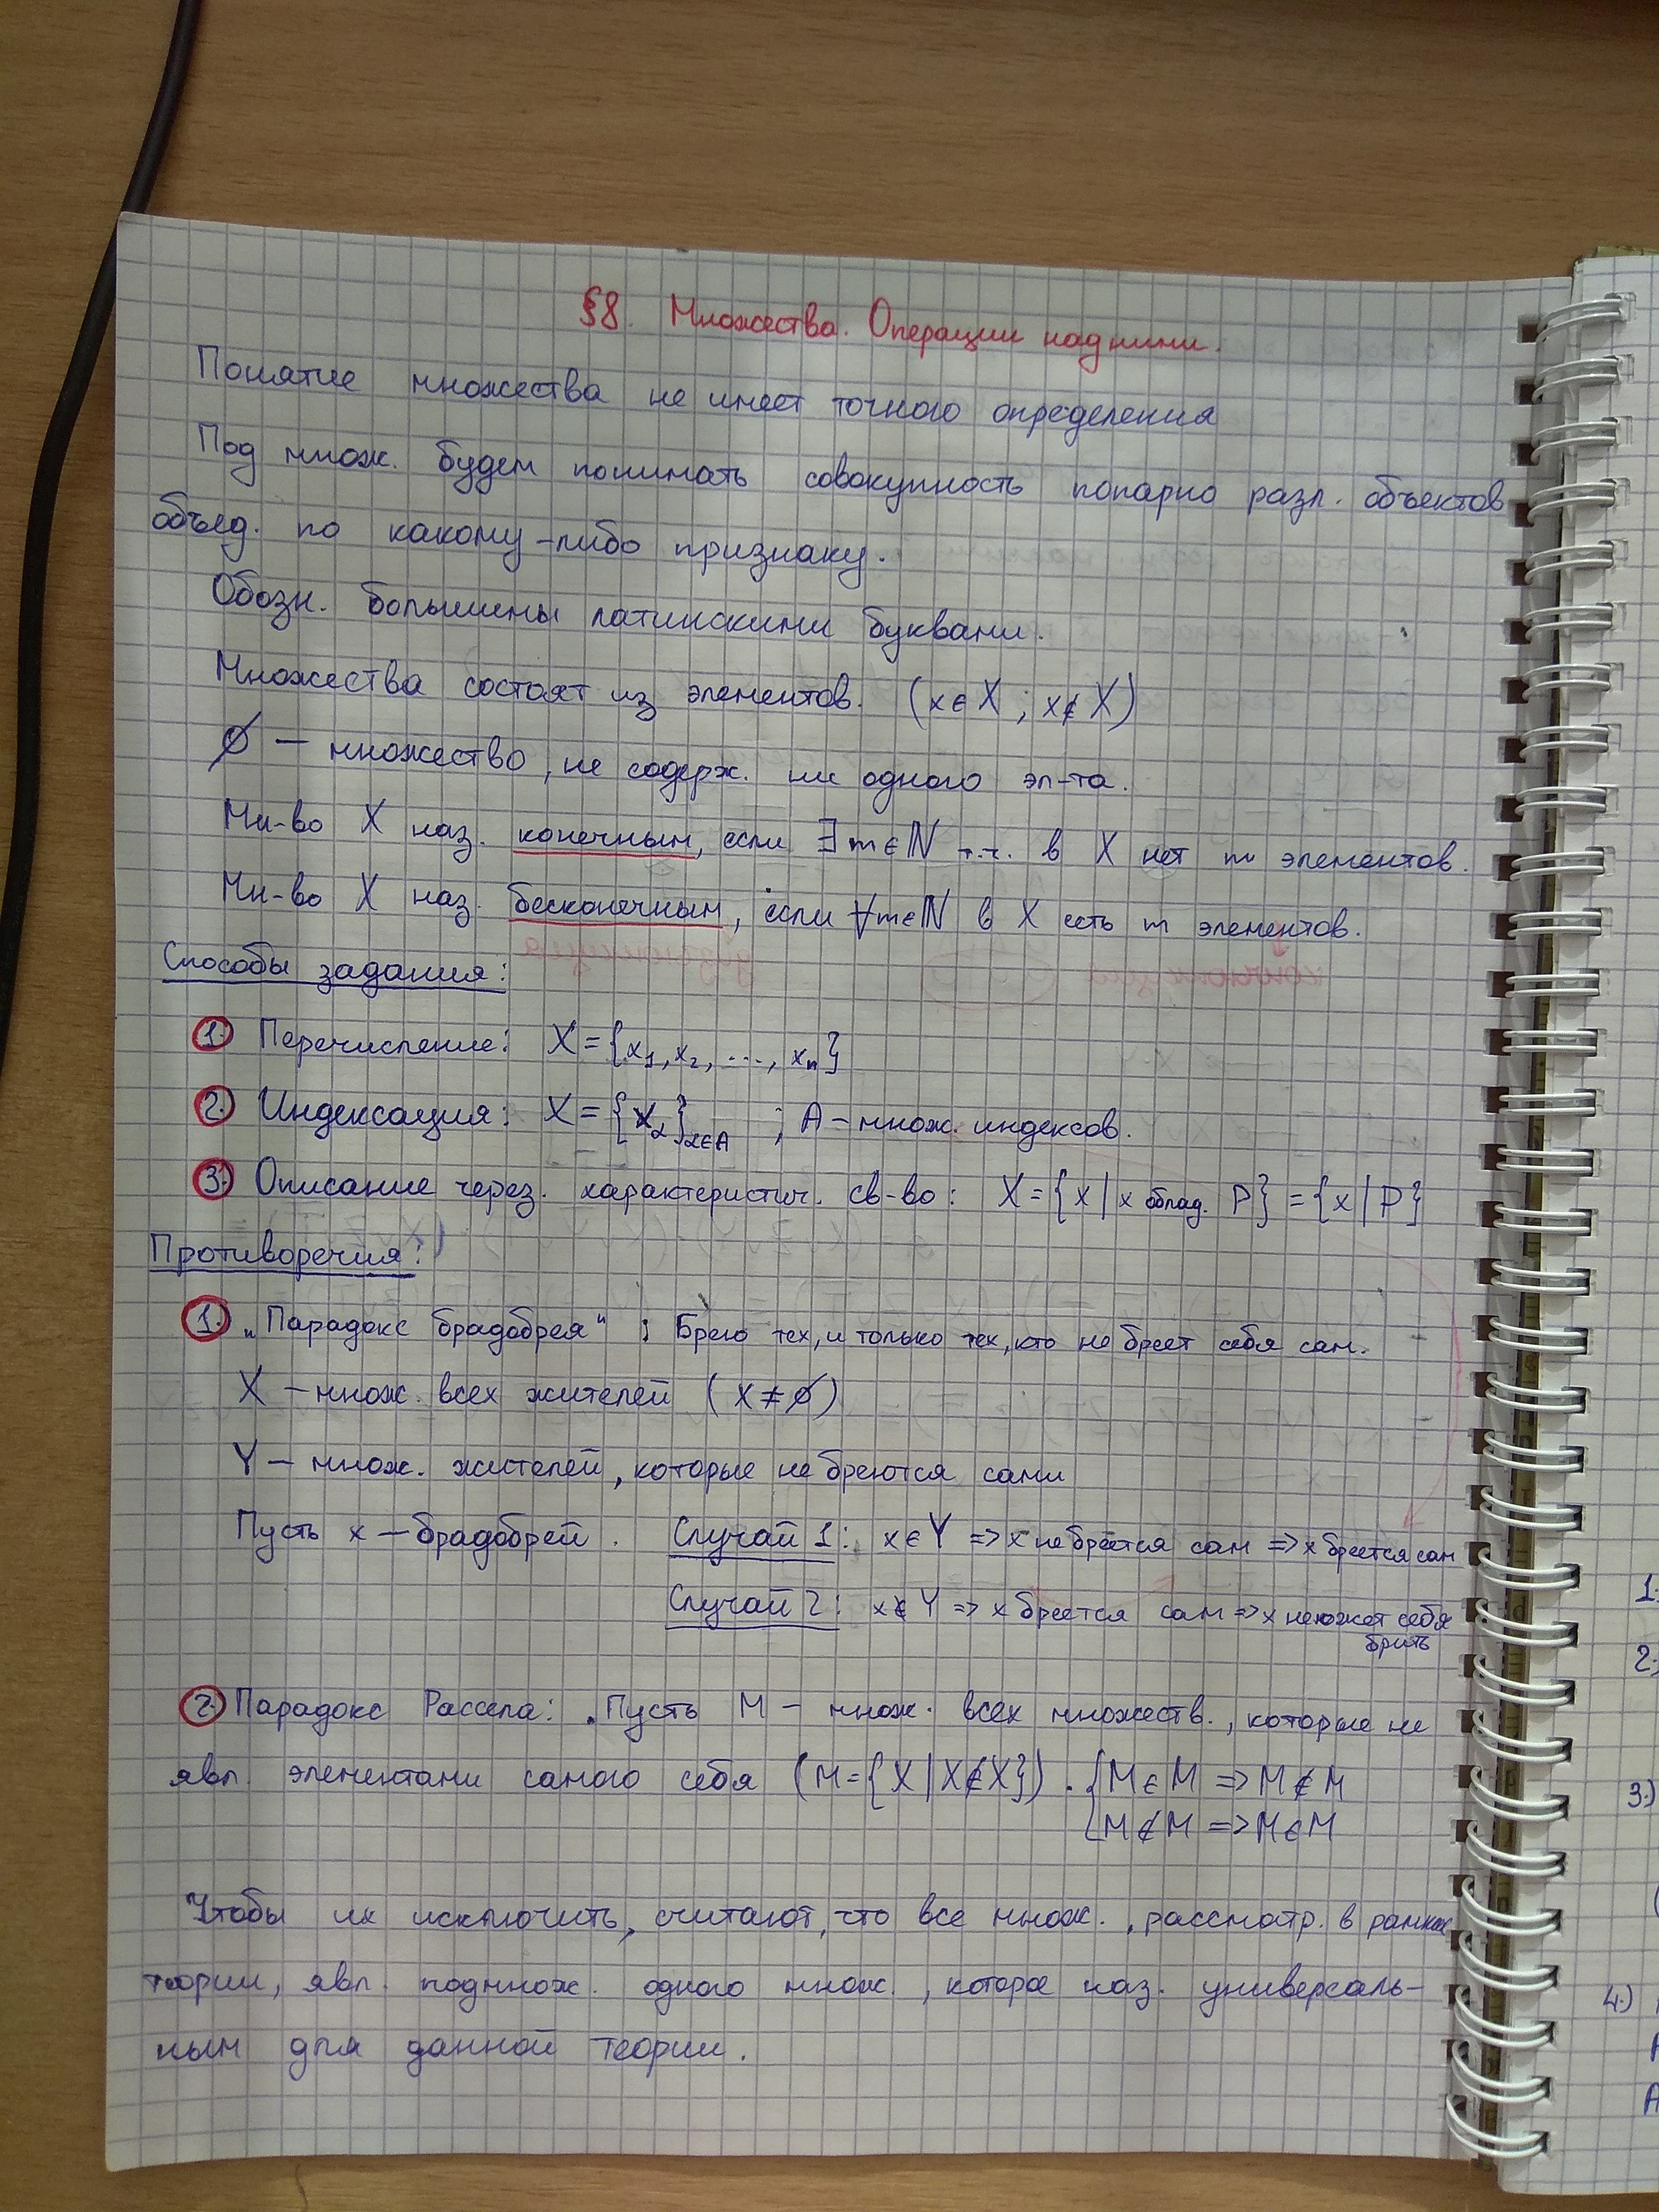 §8. Множества. Операции над ними.
Понятие множества не имеет точного определения
Под множ. будем понимать совокупность попарно разл. объектов
объед. по какому-либо признаку.
Обозн. большими латинскими буквами.
Множества состоят из элементов. (x∈X ; x∉X)
∅ — множество, не содерж. ни одного эл-та.
Мн-во X наз. конечным, если ∃m∈ℕ т.ч. в X нет m элементов.
Мн-во X наз. бесконечным, если ∀m∈ℕ в X есть m элементов.
Способы задания:
1. Перечисление: X={x₁, x₂, ..., xₙ}
2. Индексация: X={x_α}_α∈A ; A – множ. индексов.
3. Описание через. характеристич. св-во: X={x | x облад. P} = {x | P}
Противоречия:
1. „Парадокс брадобрея“ : Брею тех, и только тех, кто не бреет себя сам.
X – множ. всех жителей (X≠∅)
Y – множ. жителей, которые не бреются сами
Пусть x – брадобрей. Случай 1: x∈Y => x не бреется сам => x бреется сам
Случай 2: x∉Y => x бреется сам => x не может себя
брить
2. Парадокс Рассела: Пусть M – множ. всех множеств., которые не
явл. элементами самого себя (M={X | X∉X}). {M∈M => M∉M
M∉M => M∈M
Чтобы их исключить, считают, что все множ., рассмотр. в рамках
теории, явл. подмнож. одного множ., которое наз. универсаль-
ным для данной теории.
1.
2.
3.)
4.)